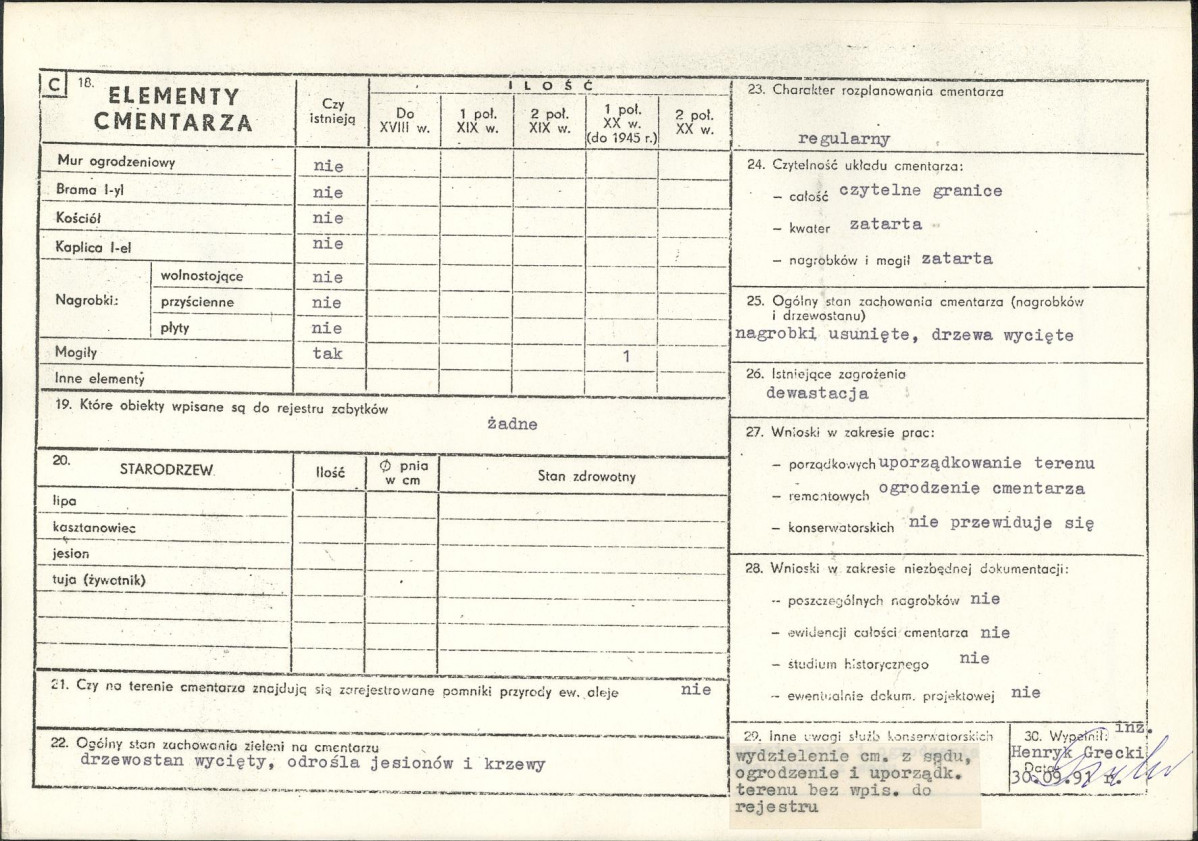 C 18.
ELEMENTY
CMENTARZA
Czy
istnieją
ILOŚĆ
Do
XVIII w.
1 poł.
XIX w.
2 poł.
XIX w.
1 poł.
XX w.
(do 1945 r.)
2 poł.
XX w.
Mur ogrodzeniowy nie
Brama I-yl nie
Kościół nie
Kaplica I-el nie
Nagrobki:
wolnostojące nie
przyścienne nie
płyty nie
Mogiły tak 1
Inne elementy
19. Które obiekty wpisane są do rejestru zabytków
żadne
20. STARODRZEW
Ilość
Ø pnia
w cm
Stan zdrowotny
lipa
kasztanowiec
jesion
tuja (żywotnik)
21. Czy na terenie cmentarza znajdują się zarejestrowane pomniki przyrody ew. aleje nie
22. Ogólny stan zachowania zieleni na cmentarzu
drzewostan wycięty, odrośla jesionów i krzewy
23. Charakter rozplanowania cmentarza
regularny
24. Czytelność układu cmentarza:
— całość czytelne granice
— kwater zatarta
— nagrobków i mogił zatarta
25. Ogólny stan zachowania cmentarza (nagrobków
i drzewostanu)
nagrobki usunięte, drzewa wycięte
26. Istniejące zagrożenia
dewastacja
27. Wnioski w zakresie prac:
— porządkowych uporządkowanie terenu
— remontowych ogrodzenie cmentarza
— konserwatorskich nie przewiduje się
28. Wnioski w zakresie niezbędnej dokumentacji:
— poszczególnych nagrobków nie
— ewidencji całości cmentarza nie
— studium historycznego nie
— ewentualnie dokum. projektowej nie
29. Inne uwagi służb konserwatorskich
wydzielenie cm. z sądu,
ogrodzenie i uporządk.
terenu bez wpis. do
rejestru
30. Wypełnił: inż.
Henryk Grecki
Data:
30.09.91 r.